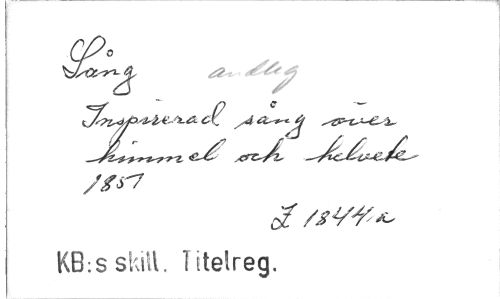 Sång andlig
Inspirerad sång över
himmel och helvete
1857
Z 1844:a
KB:s skill. Titelreg.